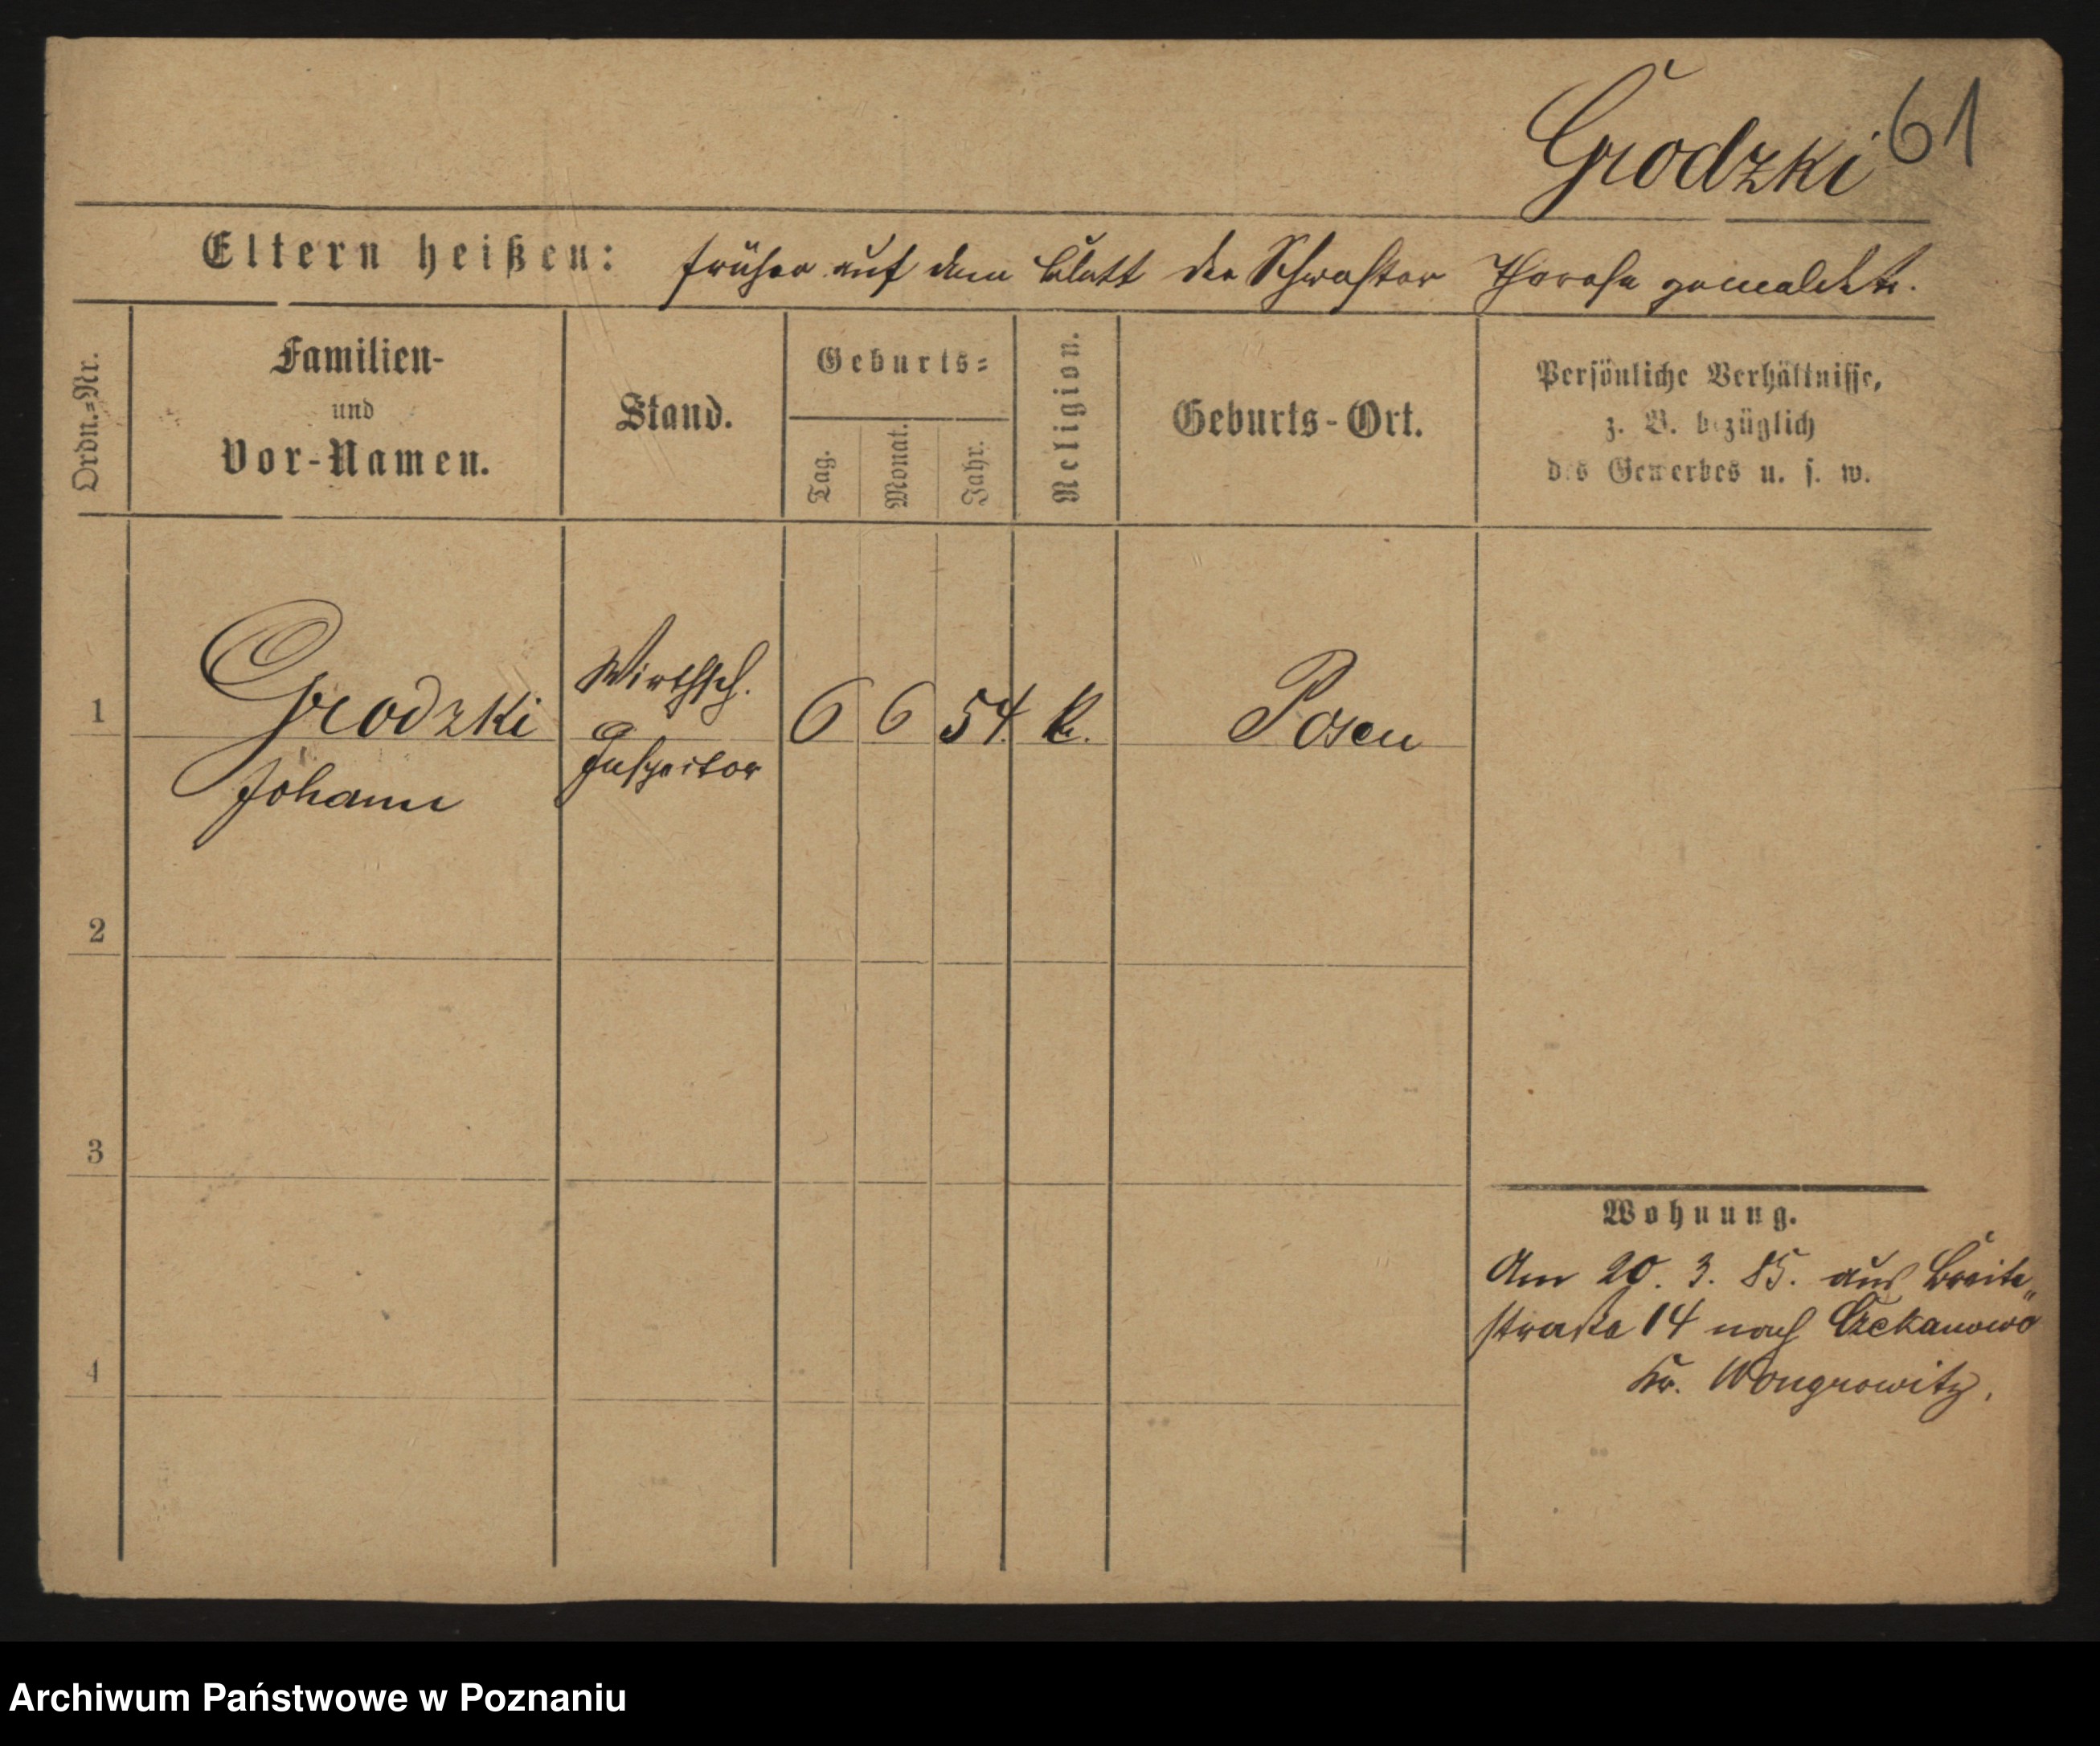 Grodzki 61
Eltern heißen: früher auf dem Blatt der Schwester Therese gemeldet.
Ordn.=Nr.
Familien-
und
Vor-Namen.
Stand.
Geburts=
Tag.
Monat.
Jahr.
Religion.
Geburts-Ort.
Persönliche Verhältnisse,
z. B. bezüglich
des Gewerbes u. s. w.
1 Grodzki Wirthsch. 6 6 54. k. Posen
Johann Inspector
2
3
4
Wohnung.
Am 20. 3. 85. aus Breite„
straße 14 nach
Kr. Wongrowitz.
Archiwum Państwowe w Poznaniu